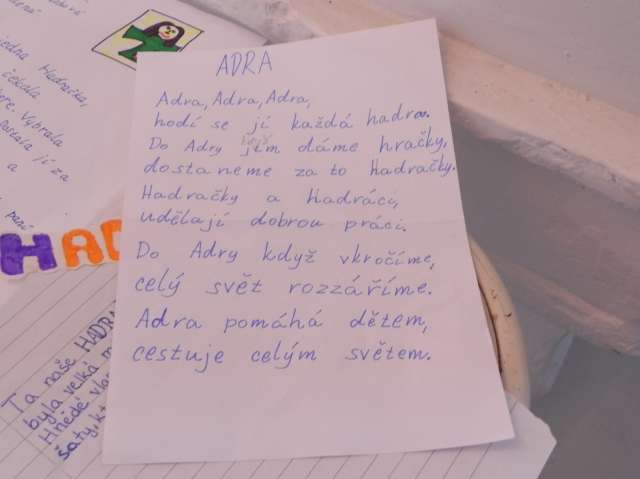 ADRA
Adra, Adra, Adra,
hodí se jí každá hadra.
Do Adry jim dáme hračky,
dostaneme za to Hadračky.
Hadračky a Hadráci,
udělají dobrou práci.
Do Adry když vkročíme,
celý svět rozzáříme.
Adra pomáhá dětem,
cestuje celým světem.
jedna Hadračka,
čekala
Vybrala
Dostala ji za
a
paní
HAD
Ta naše HADRA
byla velká m
Hnědé vla
šaty, kt